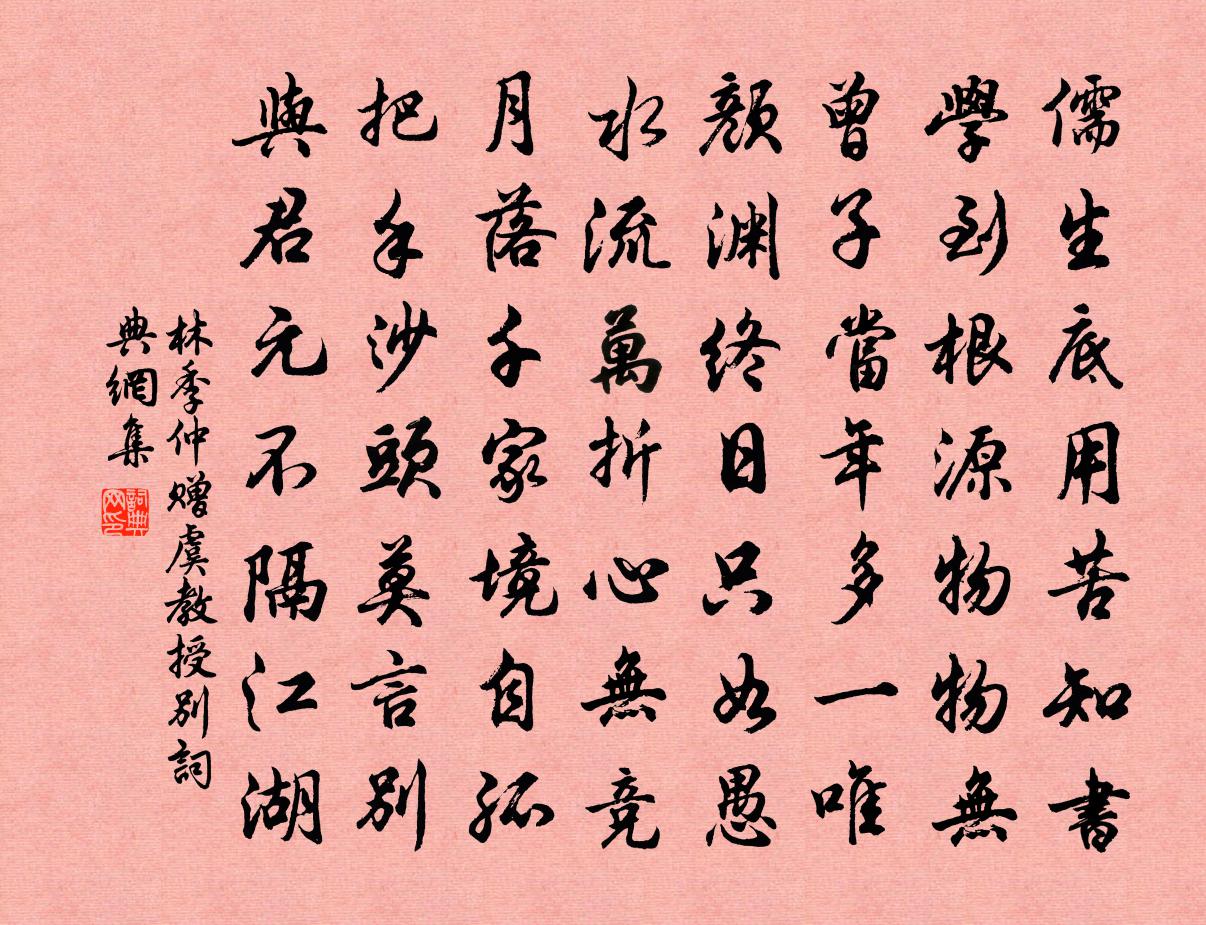 儒生底用苦知書
學到根源物物無
曾子當年多一唯
顏淵終日只如愚
水流萬折心無競
月落千家境自孤
把手沙頭莫言別
與君元不隔江湖
林季仲贈虞教授別詞
典網集
詞典
网印